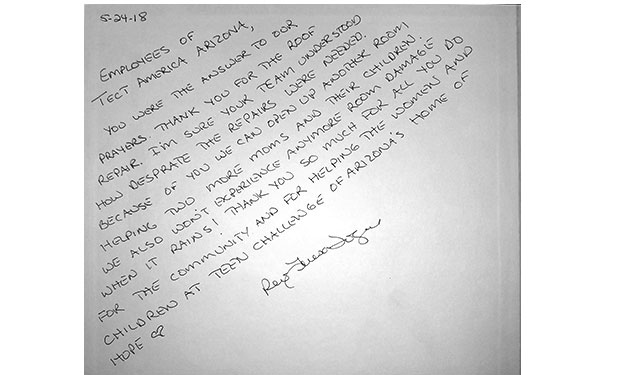 5-24-18
EMPLOYEES OF
TECT AMERICA ARIZONA,
YOU WERE THE ANSWER TO OUR
PRAYERS. THANK YOU FOR THE ROOF
REPAIR. I'M SURE YOUR TEAM UNDERSTOOD
HOW DESPRATE THE REPAIRS WERE NEEDED.
BECAUSE OF YOU WE CAN OPEN UP ANOTHER ROOM
HELPING TWO MORE MOMS AND THEIR CHILDREN.
WE ALSO WON'T EXPERIENCE ANYMORE ROOM DAMAGE
WHEN IT RAINS! THANK YOU SO MUCH FOR ALL YOU DO
FOR THE COMMUNITY AND FOR HELPING THE WOMEN AND
CHILDREN AT TEEN CHALLENGE OF ARIZONA'S HOME OF
HOPE ♡
Rev